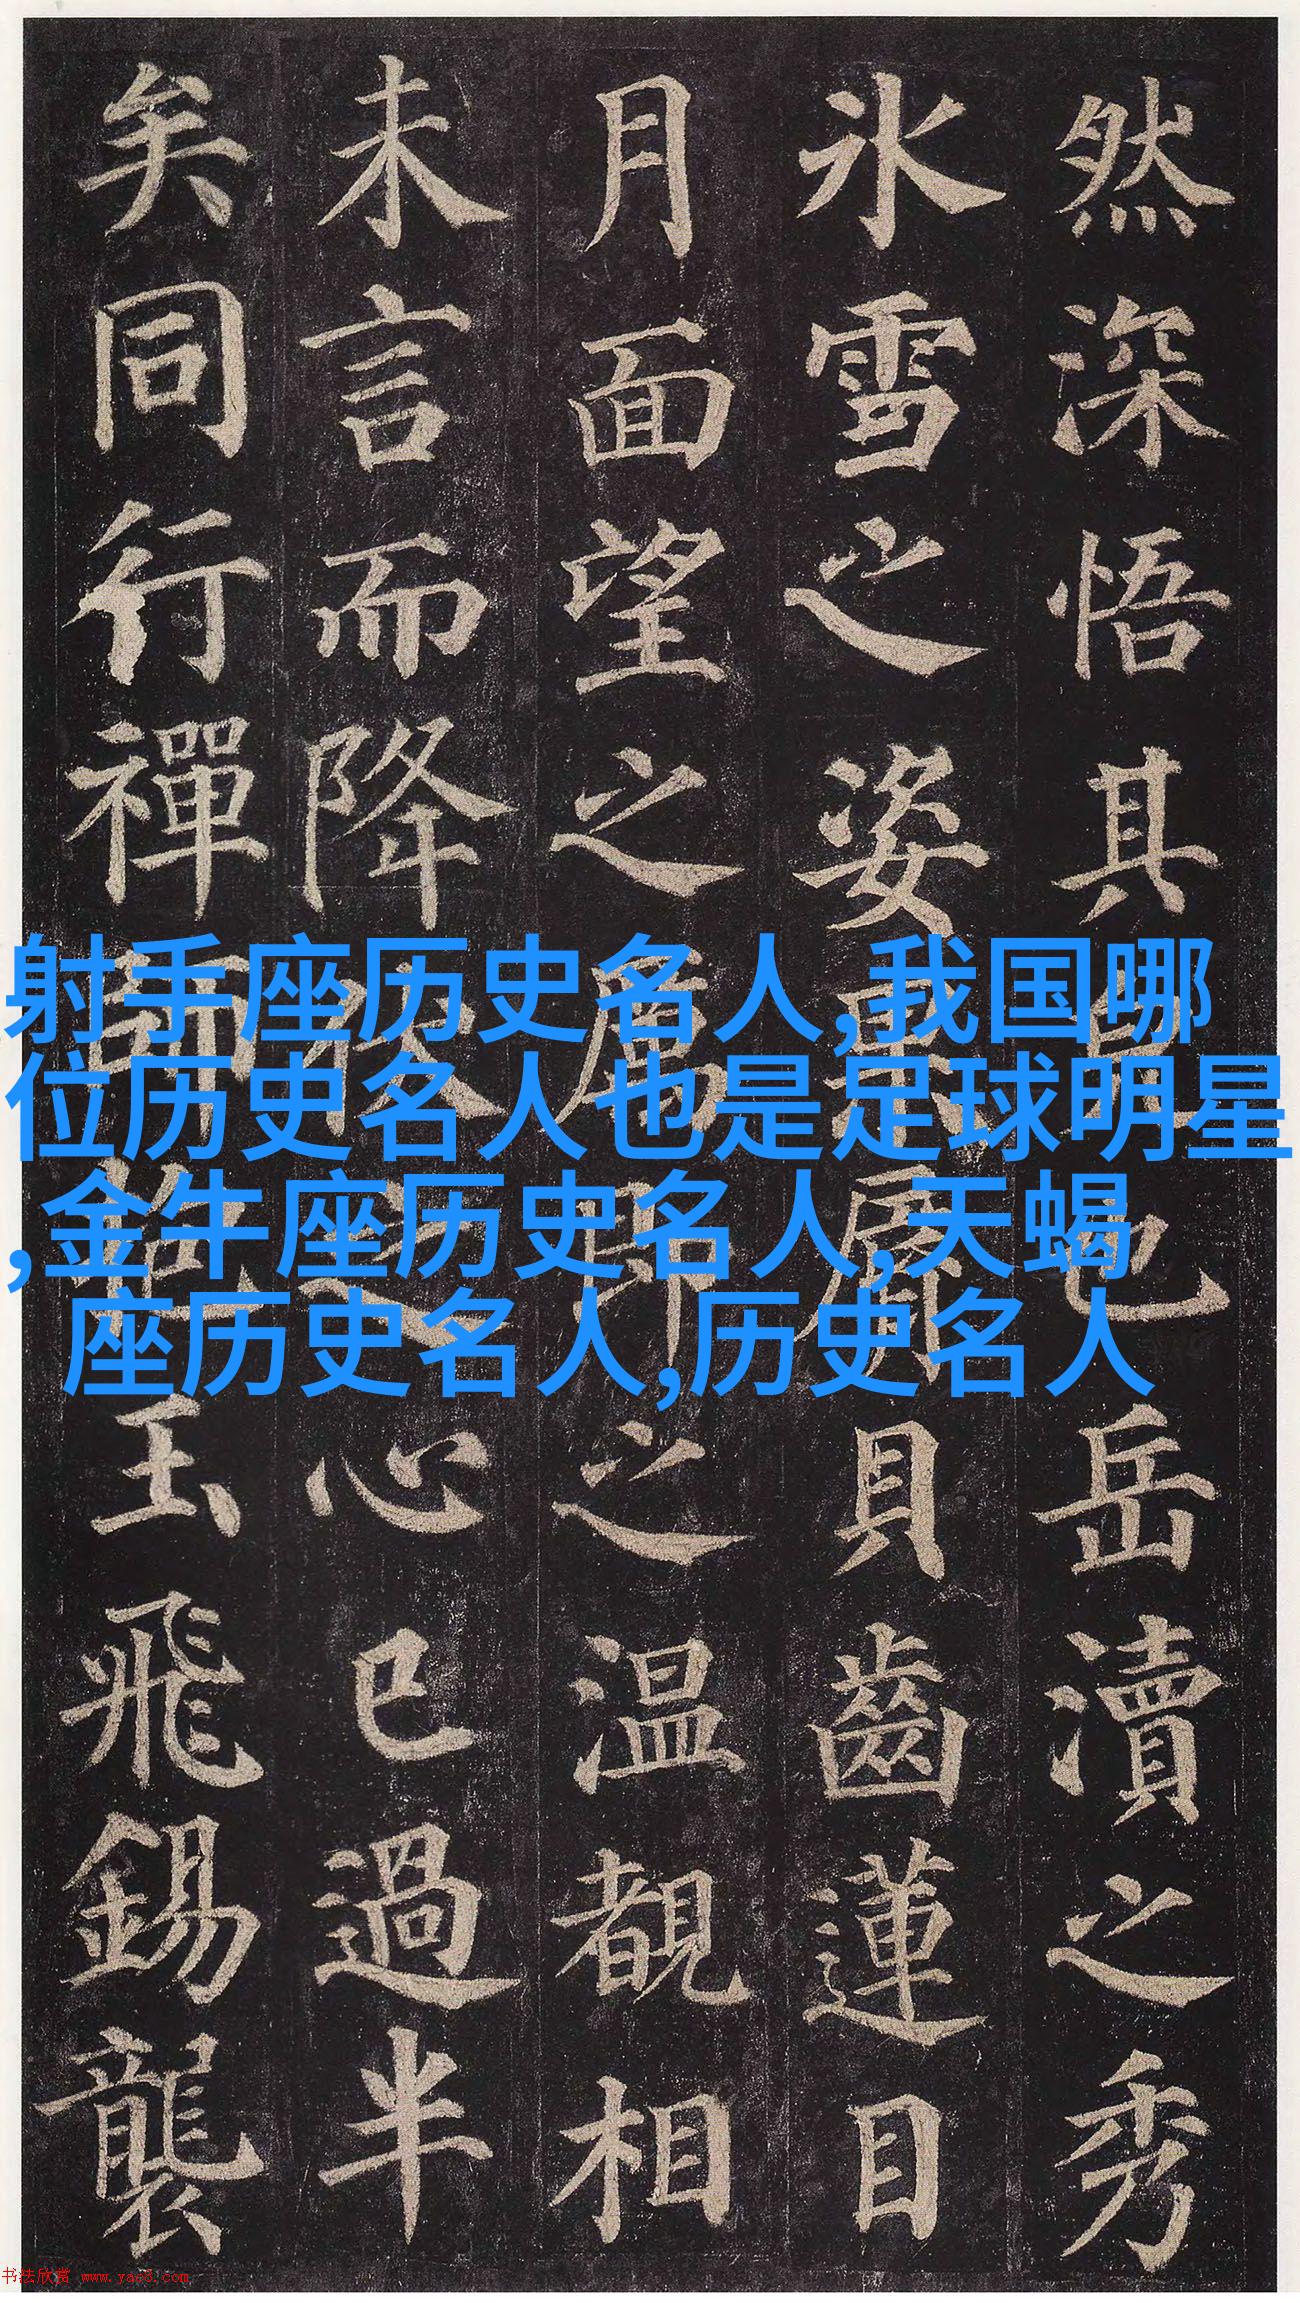 然深悟其也岳瀆之秀
氷雪之姿脣貝齒蓮目
月面望之厲即之温覩相
未言而降伏之心已過半
矣同行禪師抱玉飛錫襲
射手座历史名人,我国哪
位历史名人也是足球明星
,金牛座历史名人,天蝎
座历史名人,历史名人
书法欣赏 www.yac8.com